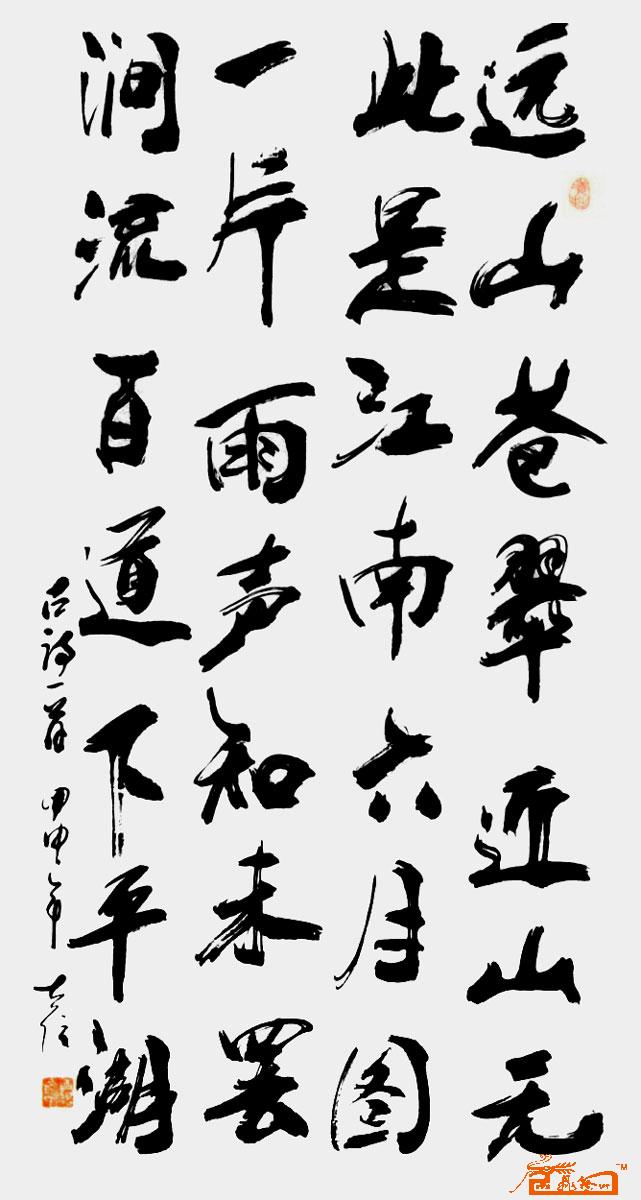 远山苍翠近山无
此是江南六月图
一片雨声知未罢
涧流百道下平湖
古诗一首 甲申年